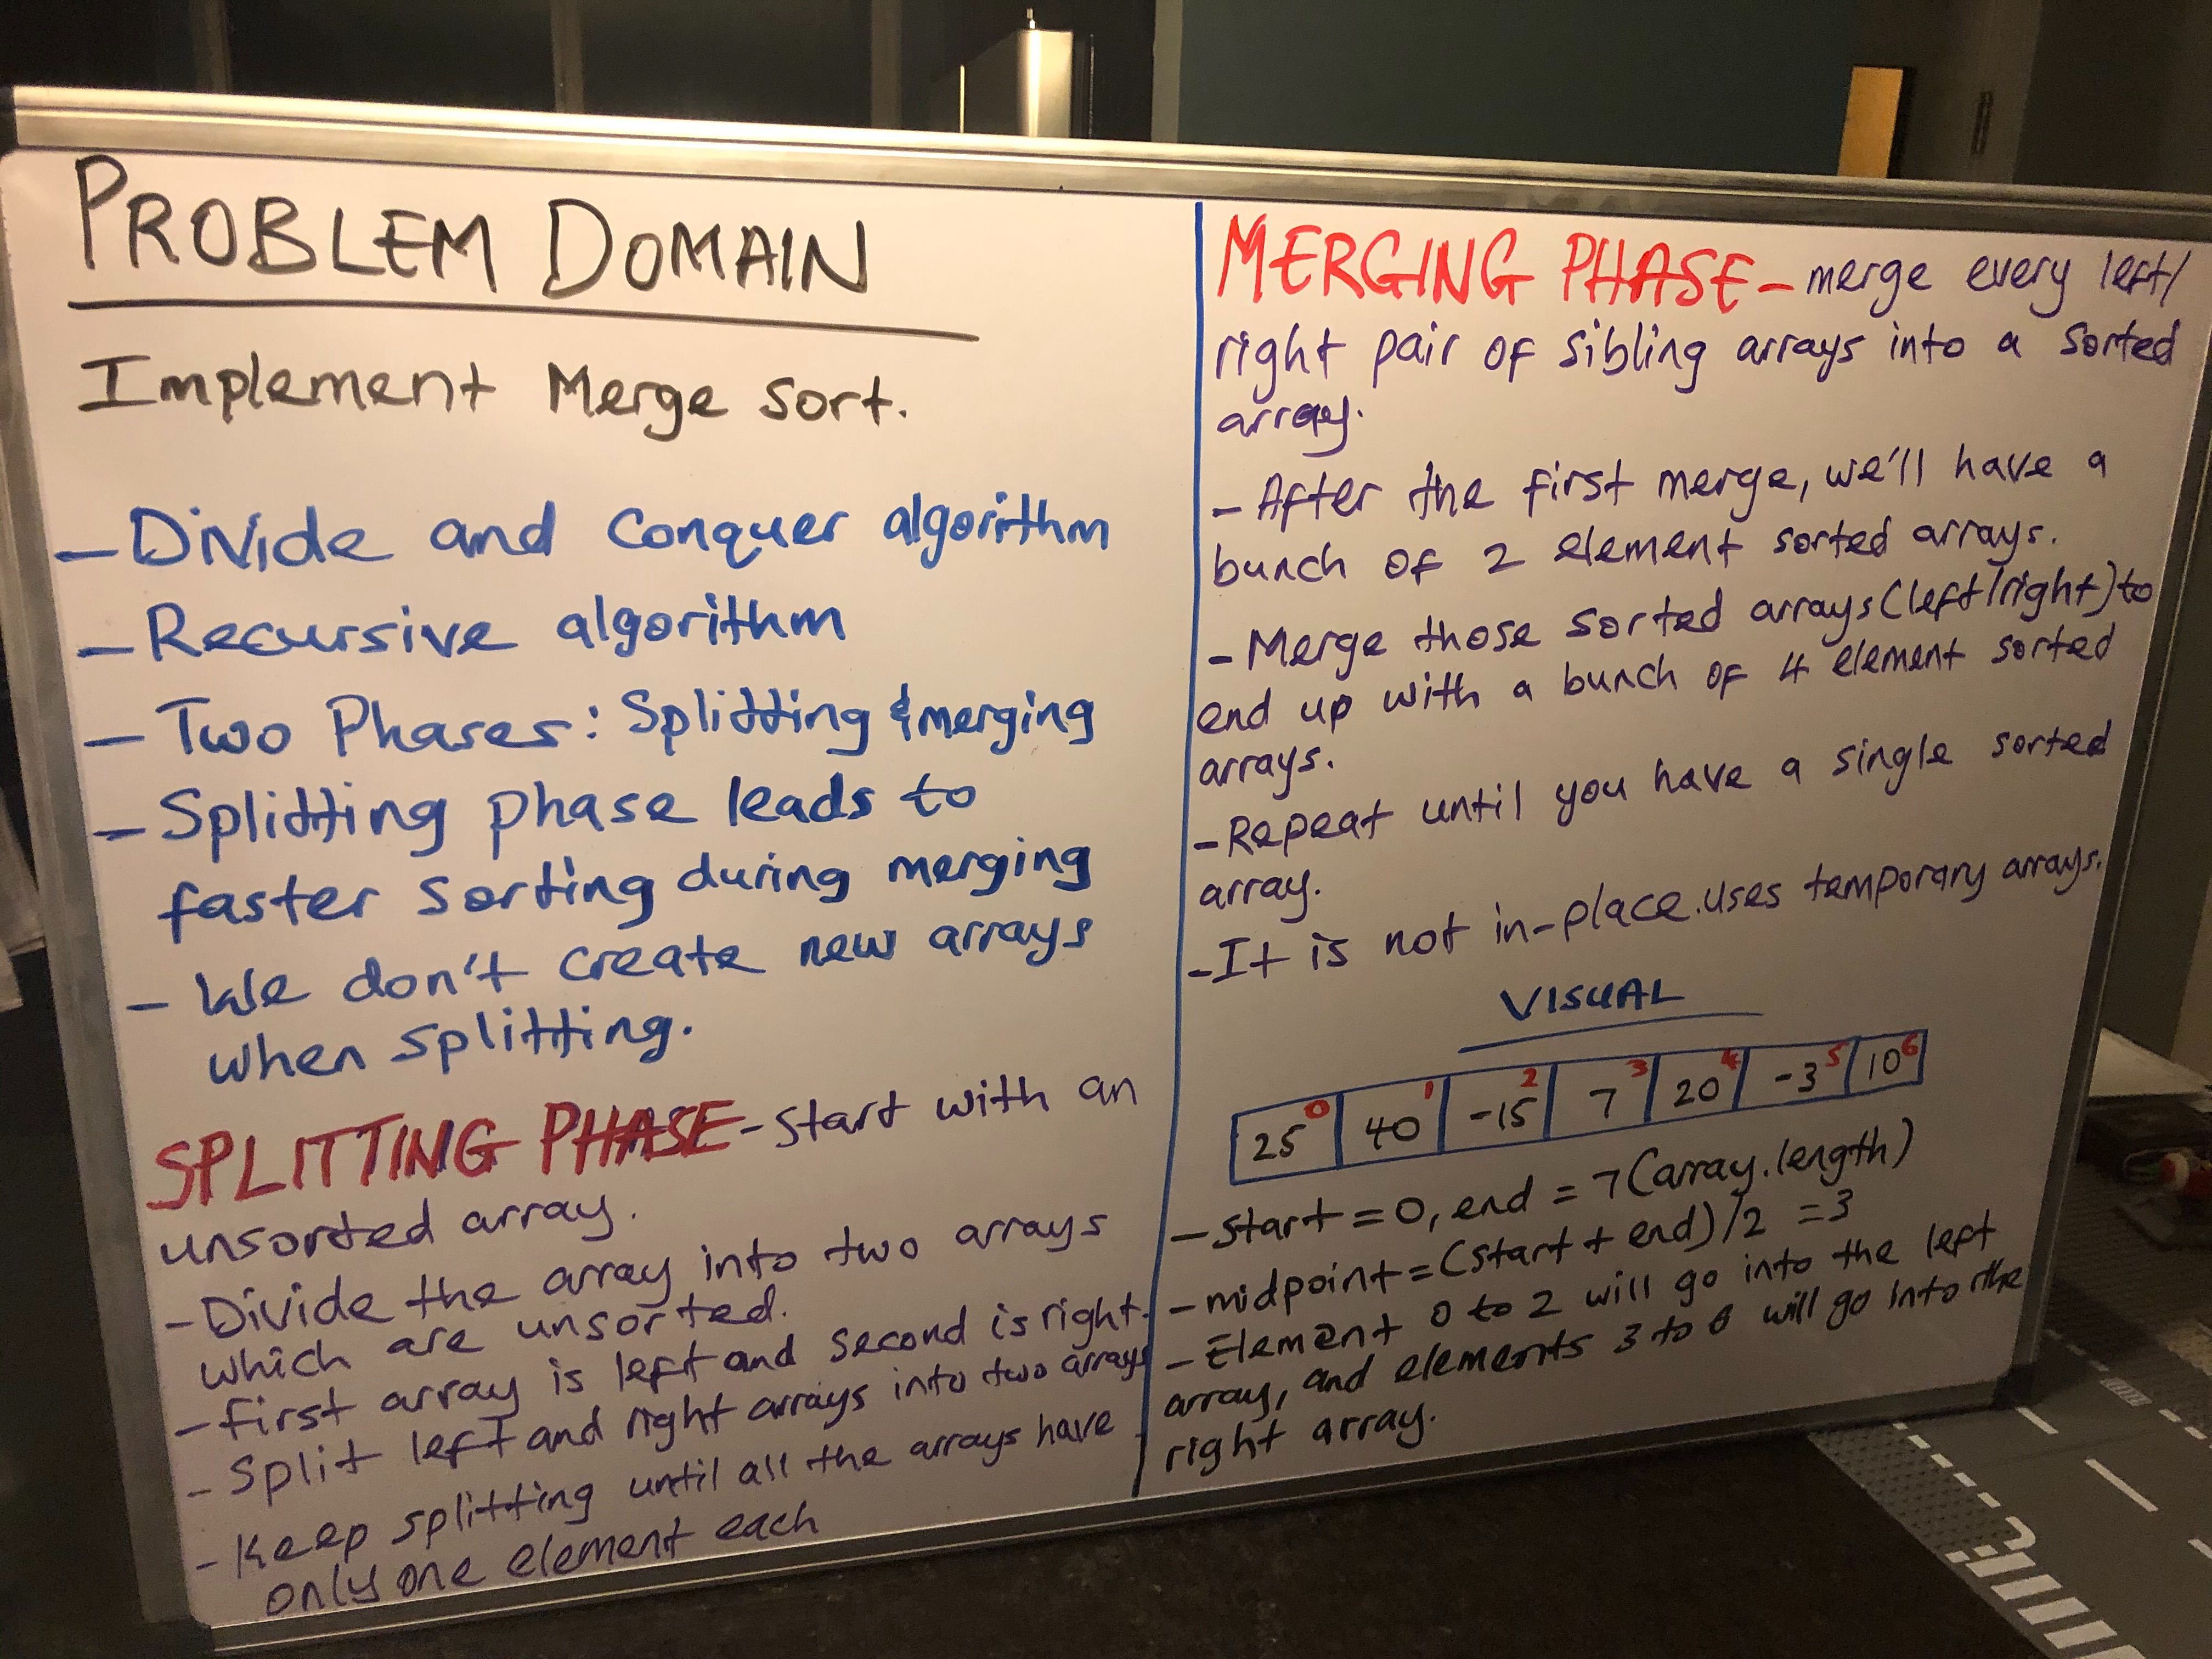 PROBLEM DOMAIN
Implement Merge Sort.
- Divide and Conquer algorithm
- Recursive algorithm
- Two Phases: Splitting & merging
- Splitting phase leads to
faster sorting during merging
- We don't create new arrays
when splitting.
SPLITTING PHASE - Start with an
unsorted array.
- Divide the array into two arrays
which are unsorted.
- first array is left and second is right.
- Split left and right arrays into two arrays
- Keep splitting until all the arrays have
only one element each
MERGING PHASE - merge every left/
right pair of sibling arrays into a sorted
array.
- After the first merge, we'll have a
bunch of 2 element sorted arrays.
- Merge those sorted arrays (left/right) to
end up with a bunch of 4 element sorted
arrays.
- Repeat until you have a single sorted
array.
- It is not in-place. uses temporary arrays.
VISUAL
0 1 2 3 4 5 6
25 40 -15 7 20 -3 10
- start = 0, end = 7 (array.length)
- midpoint = (start + end)/2 = 3
- Element 0 to 2 will go into the left
array, and elements 3 to 6 will go into the
right array.